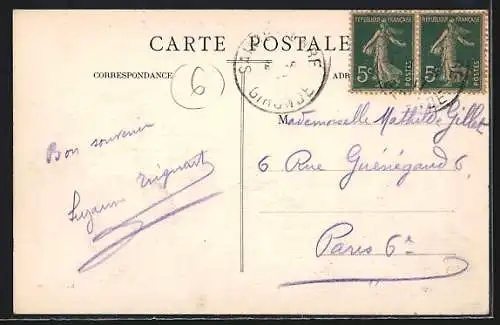 CARTE POSTALE
REPUBLIQUE FRANÇAISE
REPUBLIQUE FRANÇAISE
5c POSTES
5c POSTES
GIRONDE
6
CORRESPONDANCE
ADR
Mademoiselle Mathilde Gillet
6 Rue Guénégaud 6
Paris 6e
Bon souvenir
Suzanne